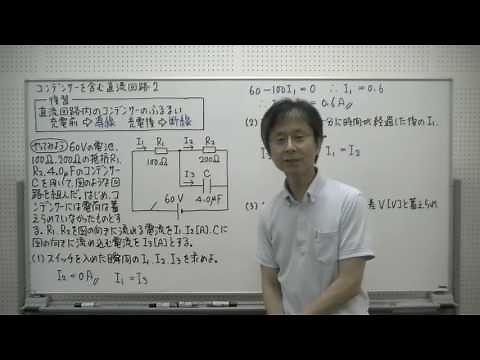 コンデンサーを含む直流回路2
復習
直流回路内のコンデンサーのふるまい
充電前⇨導線 充電後⇨断線
やってみよう 60Vの電池、
100Ω、200Ωの抵抗R₁、
R₂、4.0μFのコンデンサー
Cを用いて、図のような回
路を組んだ。はじめ、コ
ンデンサーには電荷は蓄
えられていなかったものとす
る。R₁、R₂を図の向きに流れる電流をI₁、I₂[A]、Cに
図の向きに流れ込む電流をI₃[A]とする。
(1) スイッチを入れた瞬間のI₁、I₂、I₃を求めよ。
I₂=0A I₁=I₃
I₁ R₁
100Ω
I₂ R₂
200Ω
I₃ C
4.0μF
60V
60-100I₁=0 ∴I₁=0.6
0.6A
(2)
分に時間が経過した後のI₁、
I₃
I₁=I₂
(3)
差V[V]と蓄えられ